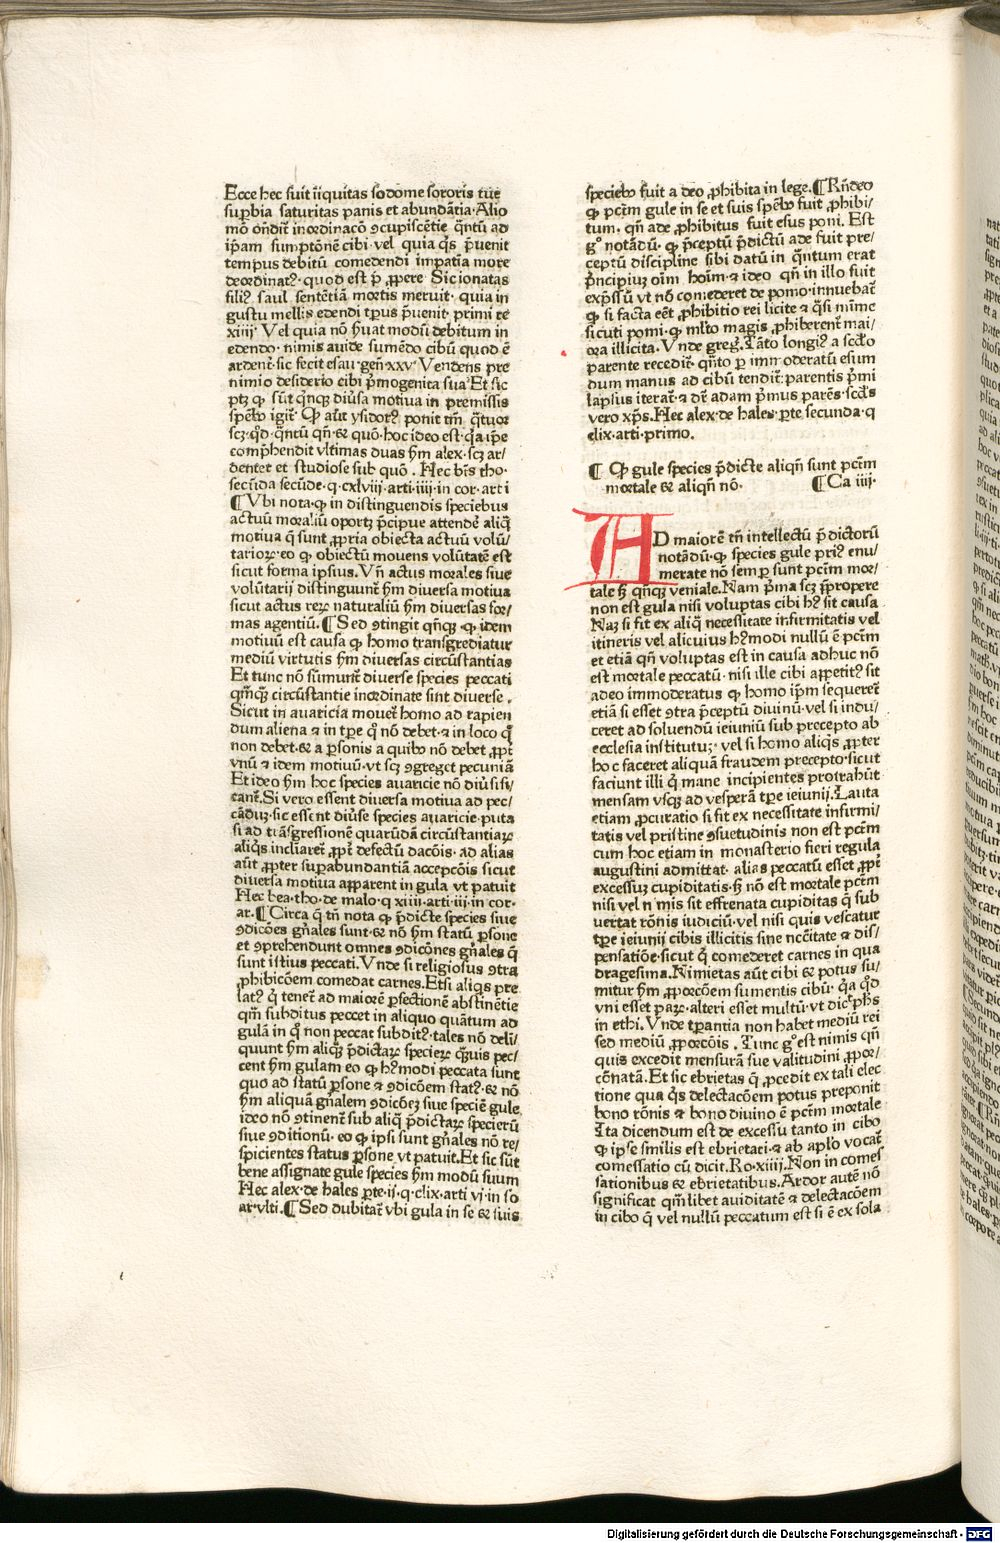 Ecce hec fuit iiquitas sodome sororis tue
suꝑbia saturitas panis et abundãtia·Alio
mõ oñdit̃ inordinacõ ꝯcupiscẽtie q̃ntũ ad
ip̃am sumptõnẽ cibi·vel quia q̃s p̃uenit
tempus debitũ comedendi impatia more
deordinatꝰ·quod est p̃ ꝓpere Sic ionatas
filiꝰ saul sentẽtiã mortis meruit· quia in
gustu mellis edendi tꝑus p̃uenit· primi re
xiiij· Vel quia nõ ẽuat modũ debitum in
edendo· nimis auide sumẽdo cibũ quod ẽ
ardent̃·sic fecit esau·geñ·xxv·Vendens pre
nimio desiderio cibi p̃mogenita sua Et sic
ptꝫ ꝙ sũt q̃nqꝫ diũsa motiua in premissis
sp̃ebꝰ igit̃· Ꝙ aũt ysidorꝰ ponit tm̃ q̃tuor
scꝫ·q̃d·q̃ntũ qñ·⁊ quõ·hoc ideo est·q̃a ip̃e
comp̃hendit vltimas duas ẽm alex·scꝫ ar/
denter et studiose sub quõ . Hec bt̃s tho·
secũda secũde·q·cxlviij·arti·iiij·in cor·art i
¶Vbi nota·ꝙ in distinguendis speciebus
actuũ moraliũ oportꝫ p̃cipue attendẽ aliq̃
motiua q̃ sunt ꝓpria obiecta actuũ volũ/
tarioꝝ·eo ꝙ obiectũ mouens volũtatẽ est
sicut forma ipsius. Vñ actus morales siue
volũtarij distinguunt̃ ẽm diuersa motiua
sicut actus reꝝ naturaliũ ẽm diuersas for/
mas agentiũ.¶Sed ꝯtingit qñqꝫ·ꝙ idem
motiuũ est causa ꝙ homo transgrediatur
mediũ virtutis ẽm diuersas circũstantias
Et tunc nõ sumunt̃ diuerse species peccati
qm̃qꝫ circũstantie inordinate sint diuerse .
Sicut in auaricia mouet̃ homo ad rapien
dum aliena ⁊ in tꝑe q̃ nõ debet·⁊ in loco q̃
non debet·⁊ a ꝑsonis a quibꝰ nõ debet ꝓpt̃
vnũ ⁊ idem motiuũ·vt scꝫ ꝯgreget pecuniã
Et ideo ẽm hoc species auaricie nõ diũsifi/
cant̃.Si vero essent diuersa motiua ad pec/
cãdũ·sic essẽnt diũse species auaricie·puta
si ad trãsgressionẽ quarũdã circũstantiaꝝ
aliq̃s incliaret̃ ꝓpt̃ defectũ dacõis· ad alias
aũt ꝓpter suꝑabundantiã accepcõis sicut
diuersa motiua apparent in gula vt patuit
Hec bea·tho·de malo·q xiiij·arti·iij·in cor·
ar.¶Circa q̃ tñ nota ꝙ p̃dicte species siue
ꝯdicões gñales sunt·⁊ nõ ẽm statũ ꝑsone
et ꝯprehendunt omnes ꝯdicõnes gñales q̃
sunt istius peccati.Vnde si religiosus ꝯtra
ꝓhibicõem comedat carnes.Etsi aliq̃s pre
latꝰ q̃ tenet̃ ad maiorẽ ꝑfectionẽ abstinẽtie
qm̃ subditus peccet in aliquo quãtum ad
gulã in q̃ non peccat subditꝰ·tales nõ deli/
quunt ẽm aliqꝫ p̃dictaꝝ specieꝝ q̃uis pec/
cent ẽm gulam eo ꝙ hꝰmodi peccata sunt
quo ad statũ ꝑsone ⁊ ꝯdicõem statꝰ·⁊ nõ
ẽm aliquã gñalem ꝯdicõeꝫ siue speciẽ gule
ideo nõ ꝯtinent̃ sub aliq̃ p̃dictaꝝ specierũ
siue ꝯditionũ· eo ꝙ ipsi sunt gñales nõ re/
spicientes status ꝑsone vt patuit.Et sic sũt
bene assignate gule species ẽm modũ suum
Hec alex·de hales ꝑte·ij·q·clix·arti vj·in so
ar·vlti.¶Sed dubitat̃ vbi gula in se ⁊ suis
speciebꝰ fuit a deo ꝓhibita in lege.¶Rñdeo
ꝙ pctm̃ gule in se et suis sp̃ebꝰ fuit ꝓhibi/
tum· qñ ade ꝓhibitus fuit esus pomi. Est
gͦ notãdũ· ꝙ p̃ceptũ p̃dictũ ade fuit pre/
ceptũ discipline sibi datũ in q̃ntum erat
p̃ncipiuꝫ oĩm hoĩm·⁊ ideo qñ in illo fuit
exp̃ssũ vt nõ comederet de pomo·innuebat̃
ꝙ si facta eẽt ꝓhibitio rei licite ⁊ q̃si minime
sicuti pomi·ꝙ mlto magis ꝓhiberent̃ mai/
ora illicita. Vnde greg̃. Tãto longiꝰ a scd̃o
parente recedit̃· q̃nto ꝑ imm̃oderatũ esum
dum manus ad cibũ tendit̃:parentis p̃mi
lapsus iterat̃·⁊ dr̃ adam p̃mus parẽs·scd̃s
vero xp̃s.Hec alex·de hales·ꝑte secunda·q
clix·arti·primo.
¶ Ꝙ gule species p̃dicte aliqñ sunt pctm̃
mortale ⁊ aliqñ nõ· ¶Ca iiij·
AD maiorẽ tñ intellectũ p̃dictorũ
notãdũ·ꝙ species gule priꝰ enu/
merate nõ semꝑ sunt pctm̃ mor/
tale ꝫ qñqꝫ veniale.Nam p̃ma scꝫ ꝓpere
non est gula nisi voluptas cibi hꝰ sit causa
Naꝫ si fit ex aliq̃ necessitate infirmitatis vel
itineris vel alicuius hꝰmodi nullũ ẽ pctm̃
et etiã qñ voluptas est in causa adhuc nõ
est mortale peccatũ·nisi ille cibi appetitꝰ sit
adeo immoderatus ꝙ homo ip̃m sequeret̃
etiã si esset ꝯtra p̃ceptũ diuinũ·vel si indu/
ceret ad soluendũ ieiuniũ sub precepto ab
ecclesia institutuꝫ· vel si homo aliq̃s ꝓpter
hoc faceret aliquã fraudem precepto·sicut
faciunt illi q̃ mane incipientes protrahũt
mensam vsqꝫ ad vesperã tꝑe ieiunij.Lauta
etiam ꝓcuratio si fit ex necessitate infirmi/
tatis vel pristine ꝯsuetudinis non est pctm̃
cum hoc etiam in monasterio fieri regula
augustini admittat· alias peccatũ esset ꝓpt̃
excessuꝫ cupiditatis·ꝫ nõ est mortale pctm̃
nisi vel nimis sit effrenata cupiditas q̃ sub
uertat rõnis iudiciũ·vel nisi quis vescatur
tꝑe ieiunij cibis illicitis sine nccitate ⁊ dis/
pensatiõe·sicut q̃ comederet carnes in qua
dragesima.Nimietas aũt cibi ⁊ potus su/
mitur ẽm ꝓporcõem sumentis cibũ· q̃a q̃d
vni esset paꝝ·alteri esset multũ·vt dic̃ phs̃
in ethi. Vnde tꝑantia non habet mediũ rei
sed mediũ ꝓporcõis . Tunc gͦ est nimis qñ
quis excedit mensurã sue valitudini ꝓpor/
cõnatã.Et sic ebrietas q̃ ꝓcedit ex tali elec
tione qua q̃s delectacõem potus preponit
bono rõnis ⁊ bono diuino ẽ pctm̃ mortale
Ita dicendum est de excessu tanto in cibo
ꝙ ip̃se similis est ebrietati·⁊ ab apl̃o vocat̃
comessatio cũ dicit.Ro·xiiij.Non in comes
sationibus ⁊ ebrietatibus.Ardor autẽ nõ
significat qm̃libet auiditatẽ ⁊ delectacõem
in cibo q̃ vel nullũ peccatum est si ẽ ex sola
Digitalisierung gefördert durch die Deutsche Forschungsgemeinschaft - DFG